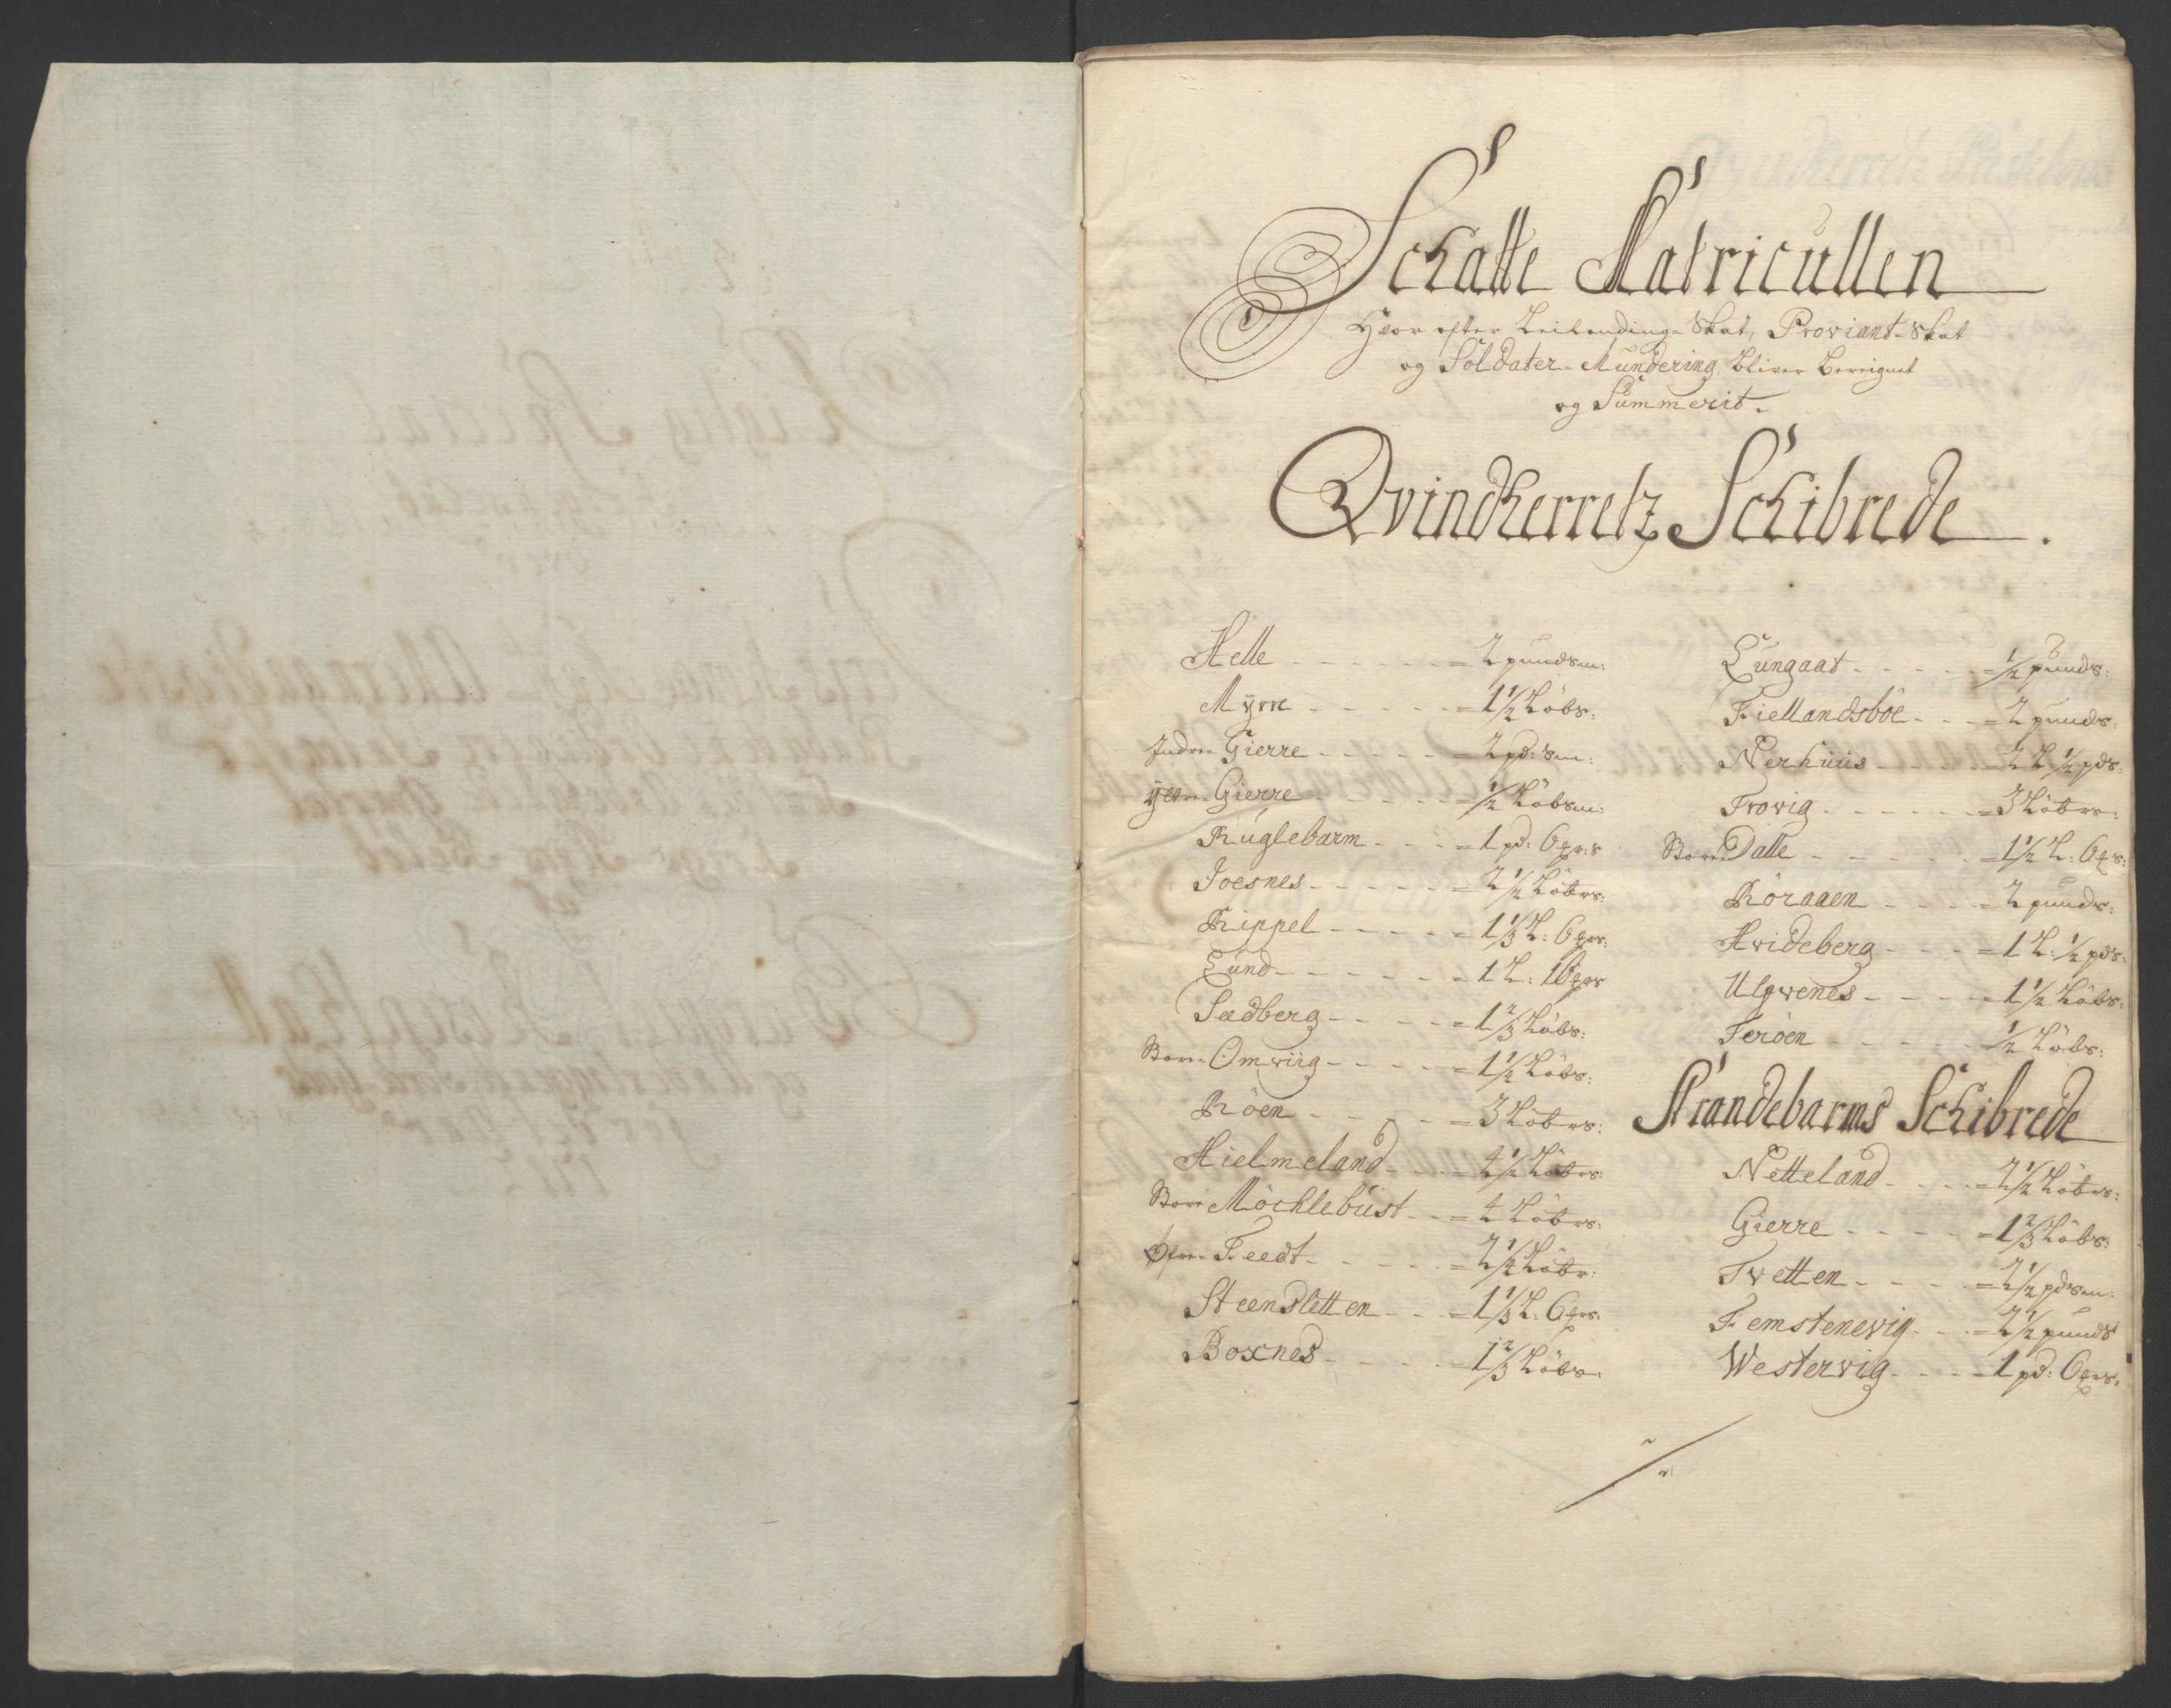 Schatte Matricullen
Hvor efter Leilending-Skat, Proviant-Skat
og Soldater-Mundering bliver bereignet
og Summerit.
Qvindherretz Schibrede.
Helle - - - - = 2 pundsm:
Myrre - - - - = 1½ Löbs:
Indre Gierre - - - - = 2 pd: sm:
Ytere Gierre - - - - = ½ Löbsm:
Ruglebarm - - - - = 1 pd: 6 gr:s
Joesnes - - - - = 2½ Löbrs:
Rippel - - - - = 1⅓ L: 6 grs:
Lund - - - - = 1 L: 16 grs
Sædberg - - - - = 1⅔ Löbs:
Store Omwiig - - - - = 1½ Löbs:
Röen - - - - = 3 Löbrs:
Hielmeland - - - - = 4½ Löbrs:
Store Möchlebust - - = 4 Löbrs:
Öfre Feedt - - - - = 2½ Löbr:
Steensletten - - - = 1⅓ L: 6 grs:
Boxnes - - - - = 1⅔ Löbs:
Lungaat - - - - = ½ punds:
Fiellandsböe - - - = 2 punds:
Nerhuus - - - - = 2 L: ½ pds:
Trovig - - - - = 3 Löbrs:
Store Dalle - - - - = 1½ L: 6 grs:
Röraaen - - - - = 2 punds:
Hvideberg - - - = 1 L: ½ pds:
Ulgvenes - - - - = 1½ Löbs:
Teröen - - - - = ½ Löbs:
Strandebarms Schibrede
Netteland - - - - = 2½ Löbrs:
Gierre - - - - = 1⅔ Löbs:
Tvetten - - - - = 2½ pdsm:
Femstenevig - - - = 2½ punds
Westervig - - - - = 1 pd: 6 grs: